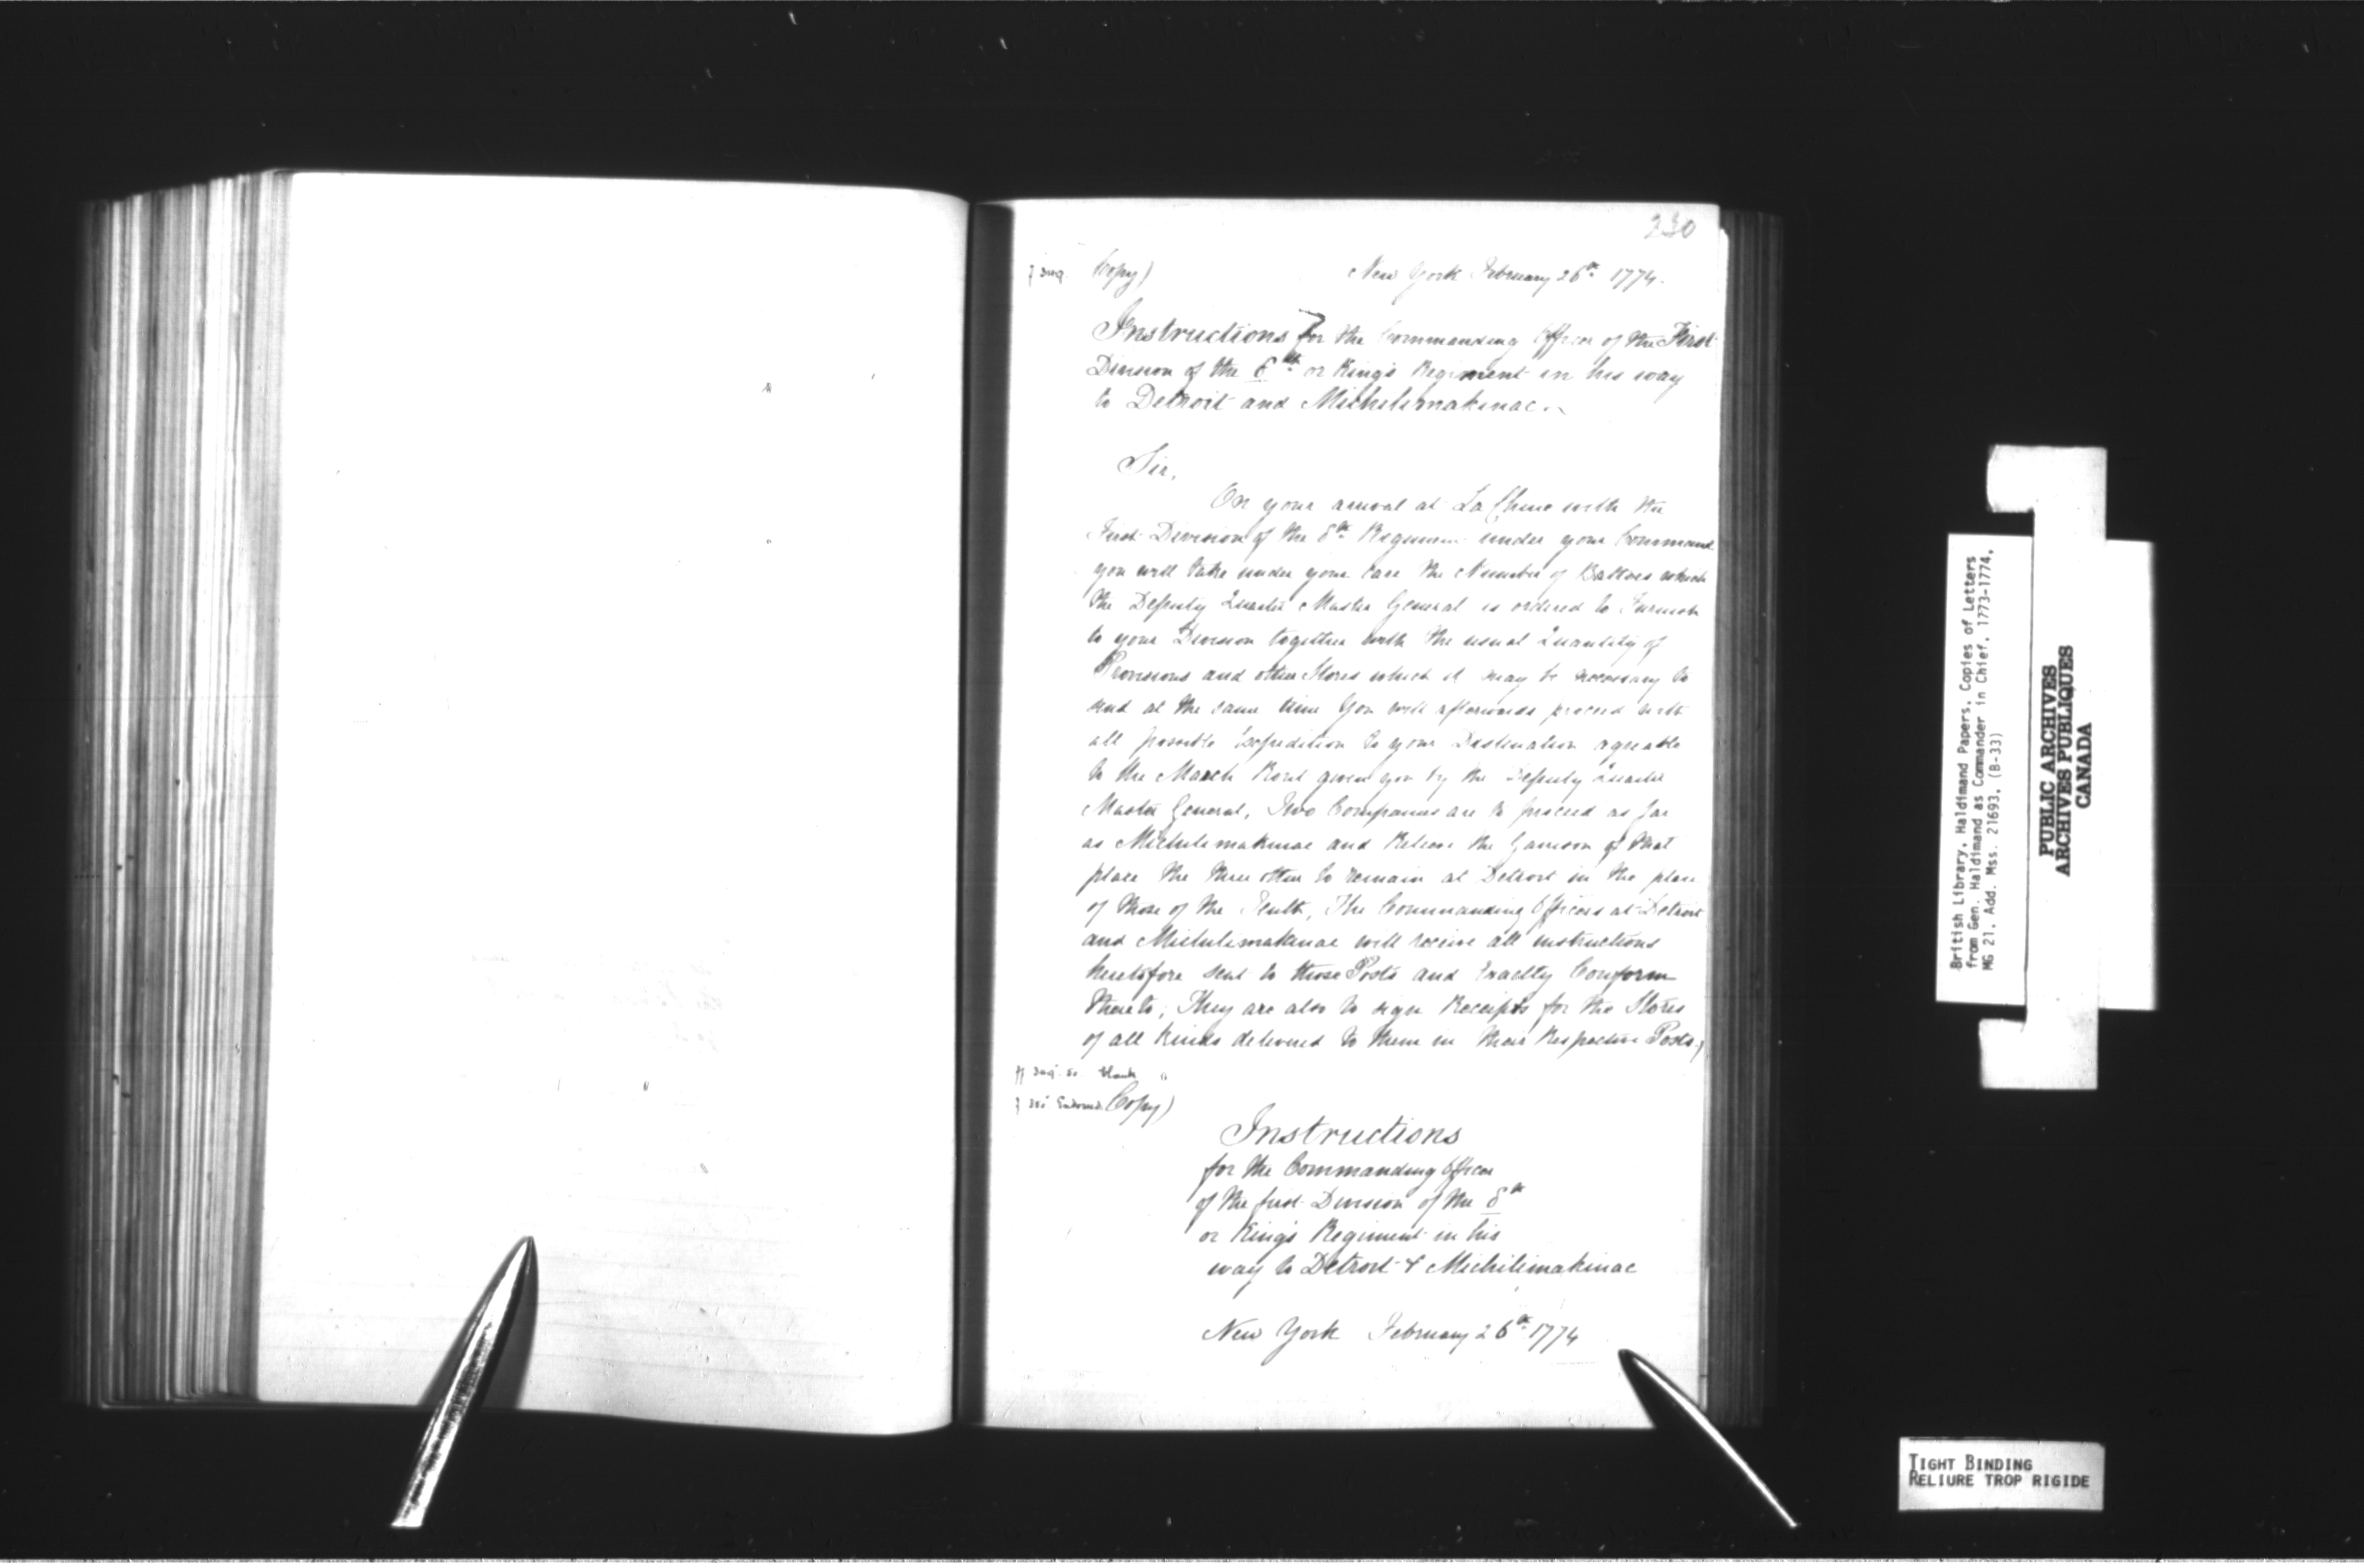 230
Copy) New York February 26th 1774.
Instructions for the Commanding Officer of the First
Division of the 8th or King's Regiment in his way
to Detroit and Michilimakinac.
Sir,
On your arrival at La Chine with the
First Division of the 8th Regiment under your Command
you will take under your care the Number of Battoes which
the Deputy Quarter Master General is ordered to Furnish
to your Division together with the usual Quantity of
Provisions and other Stores which it may be necessary to
send at the same time You will afterwards proceed with
all possible Expedition to your Destination agreable
to the March Rout given you by the Deputy Quarter
Master General, Two Companies are to proceed as far
as Michilimakinac and Relieve the Garrison of that
place the three other to remain at Detroit in the place
of those of the Tenth, The Commanding Officers at Detroit
and Michilimakinac will receive all instructions
heretofore sent to those Posts and Exactly Conform
thereto; They are also to sign Receipts for the Stores
of all kinds delivered to them in their Respective Posts,
blank
Endorsed. Copy)
Instructions
for the Commanding Officer
of the first Division of the 8th
or King's Regiment in his
way to Detroit & Michilimakinac
New York February 26th 1774
British Library, Haldimand Papers, Copies of Letters
from Gen. Haldimand as Commander in Chief, 1773-1774,
MG 21, Add. Mss. 21693, (B-33)
PUBLIC ARCHIVES
ARCHIVES PUBLIQUES
CANADA
TIGHT BINDING
RELIURE TROP RIGIDE